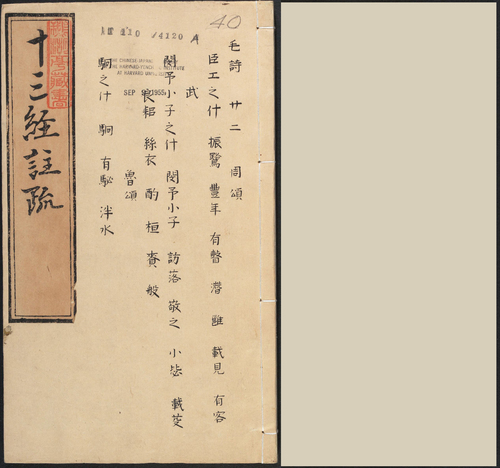 40
110 /4120 A
INSTITUTE
AT HARVARD
SEP 1955
毛詩 廿二 周頌
臣工之什 振鷺 豐年 有瞽 潛 雝 載見 有客
武
閔予小子之什 閔予小子 訪落 敬之 小毖 載芟
良耜 絲衣 酌 桓 賚 般
魯頌
駉之什 駉 有駜 泮水
十三經註疏